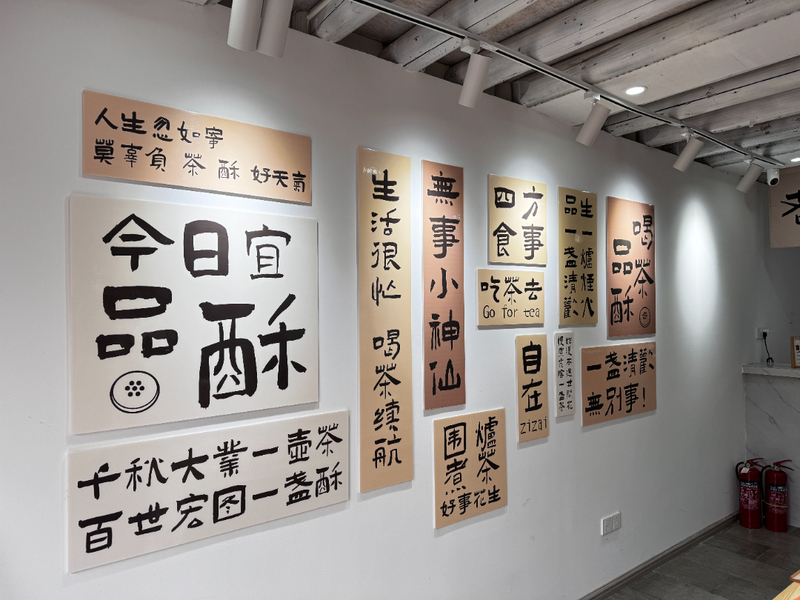 人生忽如寄
莫辜負 茶 酥 好天氣
今日宜
品酥
千秋大業一壺茶
百世宏图一盏酥
生活很忙 喝茶续航
無事小神仙
四方
食事
吃茶去
Go for tea
自在
zizai
围爐
煮茶
好事花生
生一爐煙火
品一盏清歡
喝茶
品酥
一盏清歡
無别事！